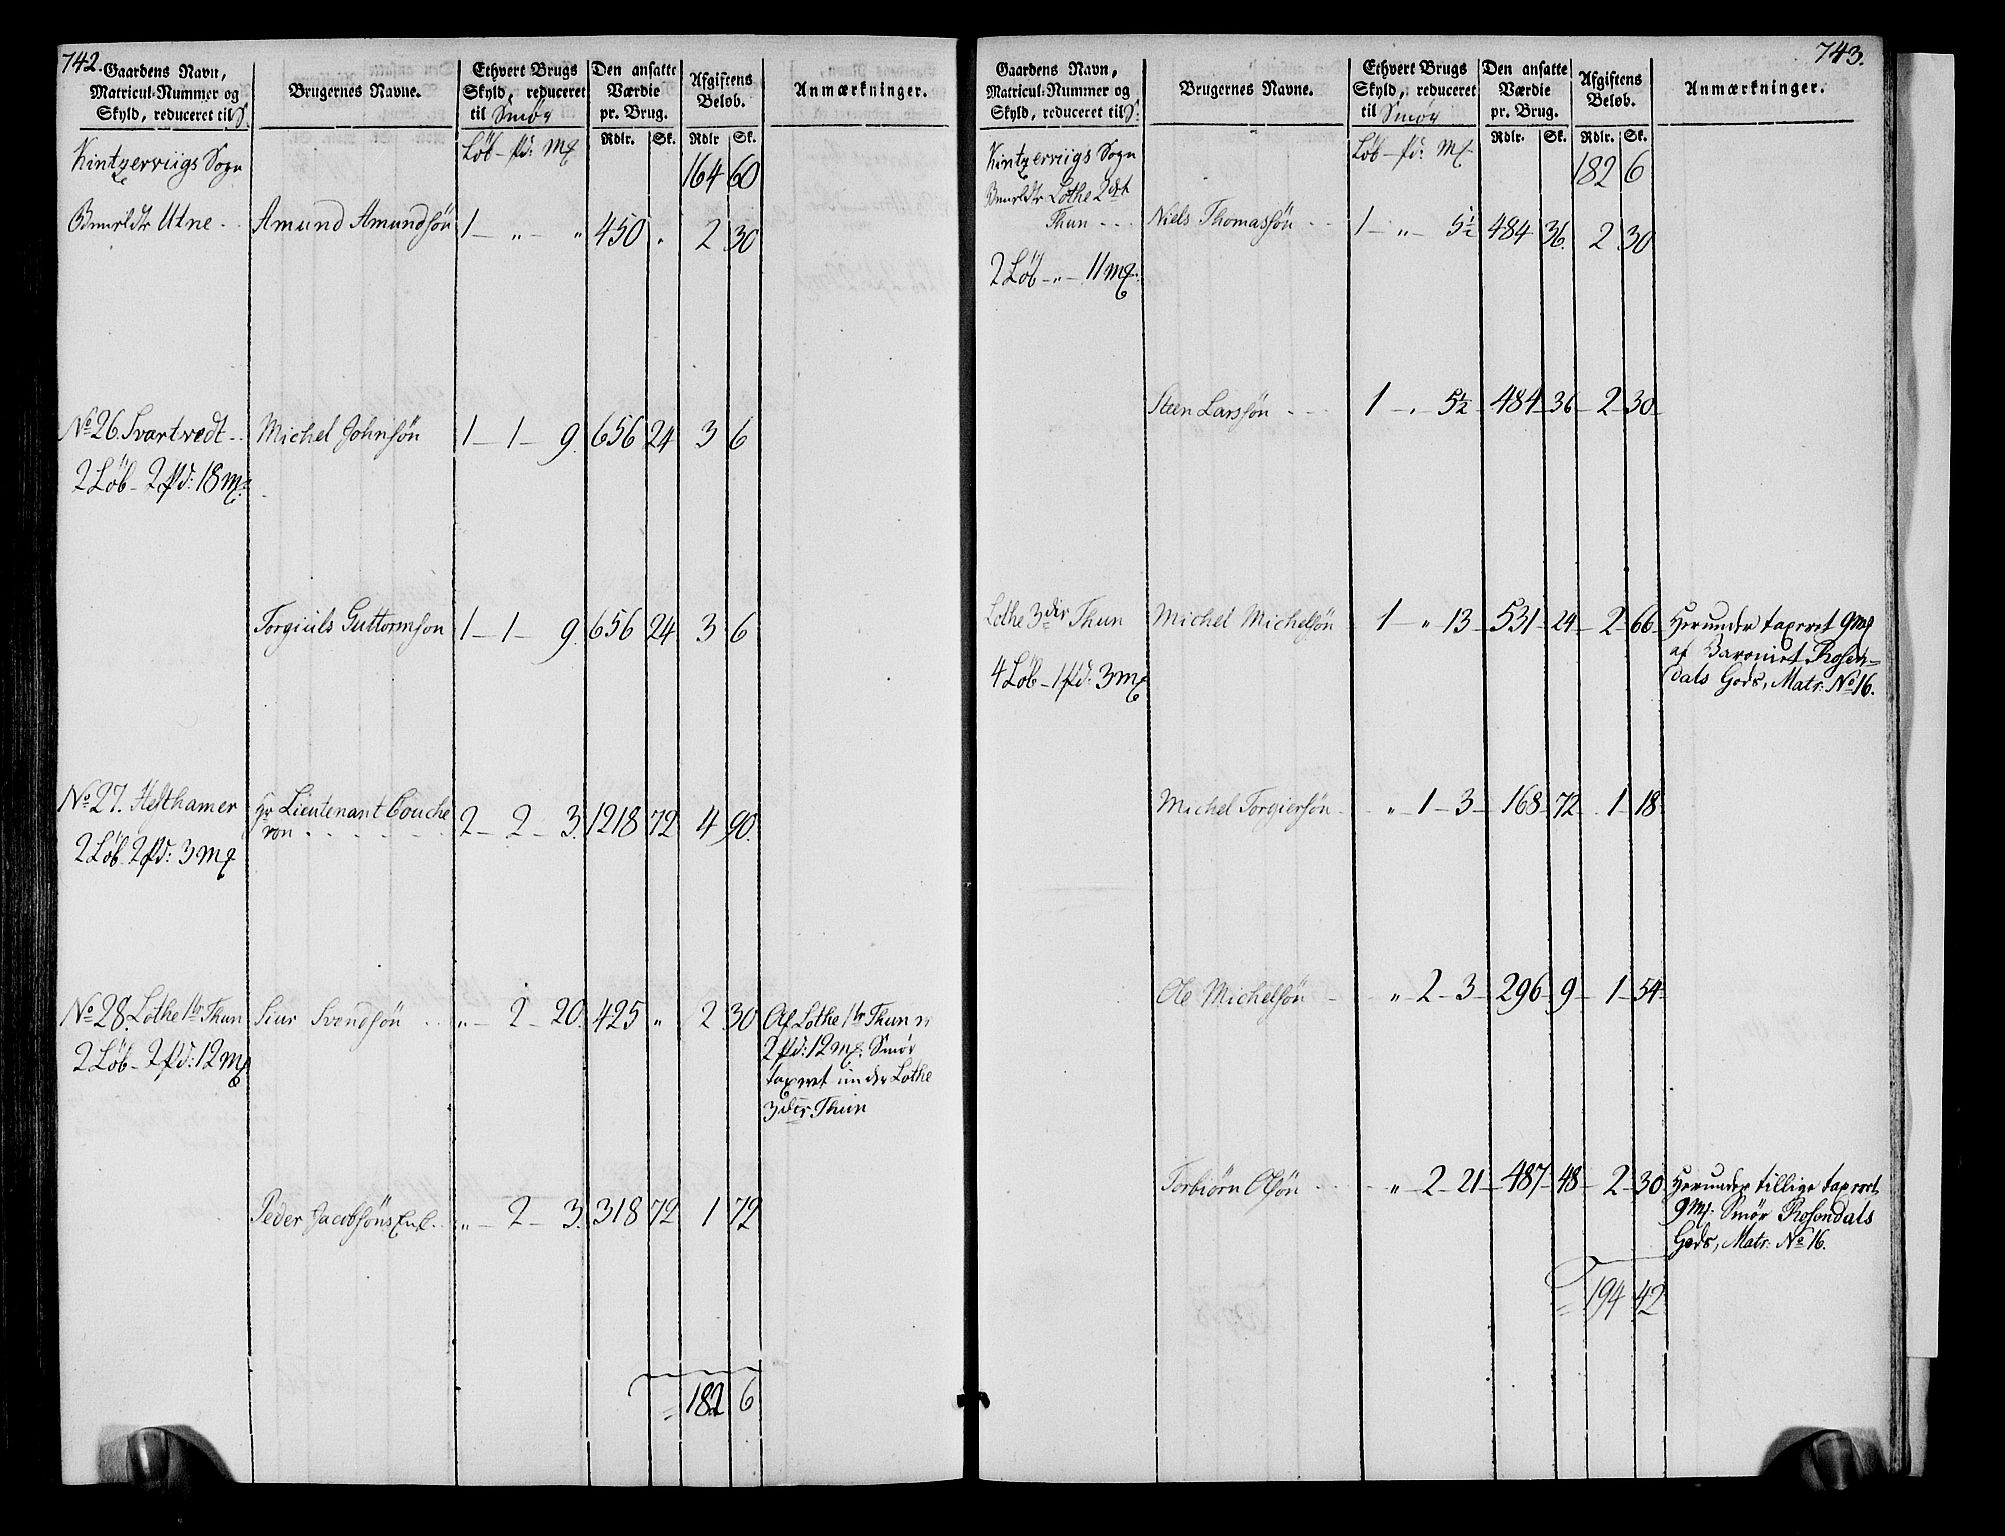 742.
Gaardens Navn, Matricul-Nummer og Skyld, reduceret til S. | Brugernes Navne. | Ethvert Brugs Skyld, reduceret til Smør | Den ansatte Værdie pr. Brug. | Afgiftens Beløb. | Anmærkninger.
Løb - pd: Mk | Rdlr. | Sk. | Rdlr | Sk.
Kintzerviigs Sogn | 164 | 60
Utne - | Amund Amundsøn | 1 - " - " | 450 | " | 2 | 30
No 26. Svartvedt - | Michel Johnsøn | 1 - 1 - 9. | 656 | 24 | 3 | 6
2 Løb - 2 pd: 18 Mk:
Torgiuls Guttormson | 1 - 1 - 9. | 656 | 24 | 3 | 6
No 27. Hesthamer | Hr Lieutenant Couche
ron - - - - | 2 - 2 - 3. | 1218 | 72 | 4 | 90.
2 Løb. 2 pd: 3 Mk
No 28. Lothe 1ste Thun | Siur Svendsøn - | " - 2 - 20. | 425 | " | 2 | 30 | Af Lothe 1ste Thun er
2 Løb - 2 pd: 12 Mk | 2 pd: 12 Mk. Smør
taxeret under Lothe
3die Thun
Peder Jacobsøns Enke | " - 2 - 3. | 318 | 72 | 1 | 72
= 182 | 6
743.
Gaardens Navn, Matricul-Nummer og Skyld, reduceret til S: | Brugernes Navne. | Ethvert Brugs Skyld, reduceret til Smør | Den ansatte Værdie pr. Brug. | Afgiftens Beløb. | Anmærkninger.
Løb - pd: Mk | Rdlr. | Sk. | Rdlr. | Sk.
Kintzerviigs Sogn | 182 | 6
Lothe 2det
Thun - - - | Niels Thomassøn - - | 1 - " - 5½ | 484 | 36. | 2 | 30
2 Løb - " - 11 Mk:
Steen Larssøn - - - | 1 - " 5½ | 484 - 36 - 2 - 30
Lothe 3die Thun | Michel Michelsøn | 1 - " 13 - 531 - 24 - 2 - 66 | Herunder taxeret 9 Mk
4 Løb - 1 pd: 3 Mk | af Baroniet Rosen=
dals Gods, Matr: No 16.
Michel Torgiersøn - | " - 1 - 3 - 168 - 72 - 1 - 18
Ole Michelsøn - | " 2 - 3 - 296 - 9 - 1 - 54
Torbiørn Olsøn - - - | " - 2 - 21 - 487 - 48 - 2 - 30 | Herunder tillige taxeret
9 Mk: Smør Rosendals
Gods, Matr: No 16.
= 194 | 42